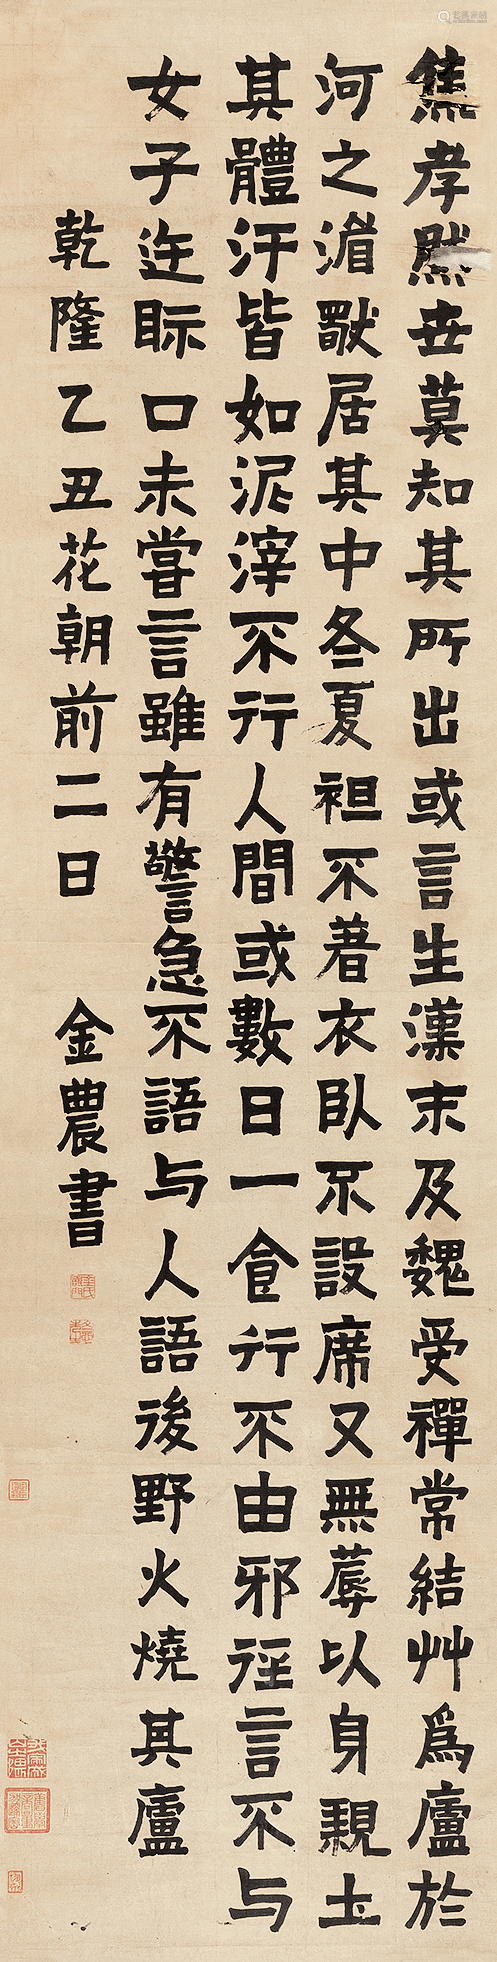 焦孝然世莫知其所出或言生漢末及魏受禪常結艸爲廬於
河之湄獸居其中冬夏袒不著衣臥不設席又無蓐以身親土
其體汙皆如泥滓不行人間或數日一食行不由邪徑言不与
女子迕眎口未嘗言雖有警急不語与人語後野火燒其廬
乾隆乙丑花朝前二日 金農書